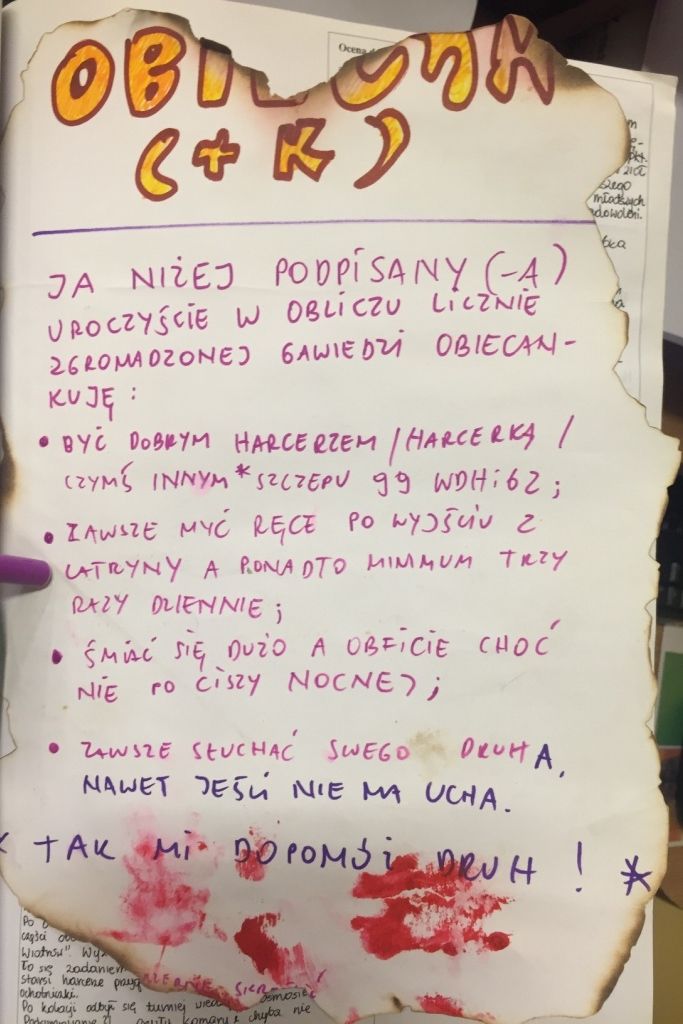 Ocena
(+K)
JA NIŻEJ PODPISANY (-A)
UROCZYŚCIE W OBLICZU LICZNIE
ZGROMADZONEJ GAWIEDZI OBIECAN-
KUJĘ:
• BYĆ DOBRYM HARCERZEM/HARCERKĄ /
CZYMŚ INNYM* SZCZEPU 99 WDHiGZ;
• ZAWSZE MYĆ RĘCE PO WYJŚCIU Z
LATRYNY A PONADTO MINIMUM TRZY
RAZY DZIENNIE;
• ŚMIAĆ SIĘ DUŻO A OBFICIE CHOĆ
NIE PO CISZY NOCNEJ;
• ZAWSZE SŁUCHAĆ SWEGO DRUHA,
NAWET JEŚLI NIE MA UCHA.
TAK MI DOPOMÓŻ DRUH! *
młodszych
Po
części
To się zadaniem
starsi harcerze
Po kolacji odbył się turniej
komary i chyba nie